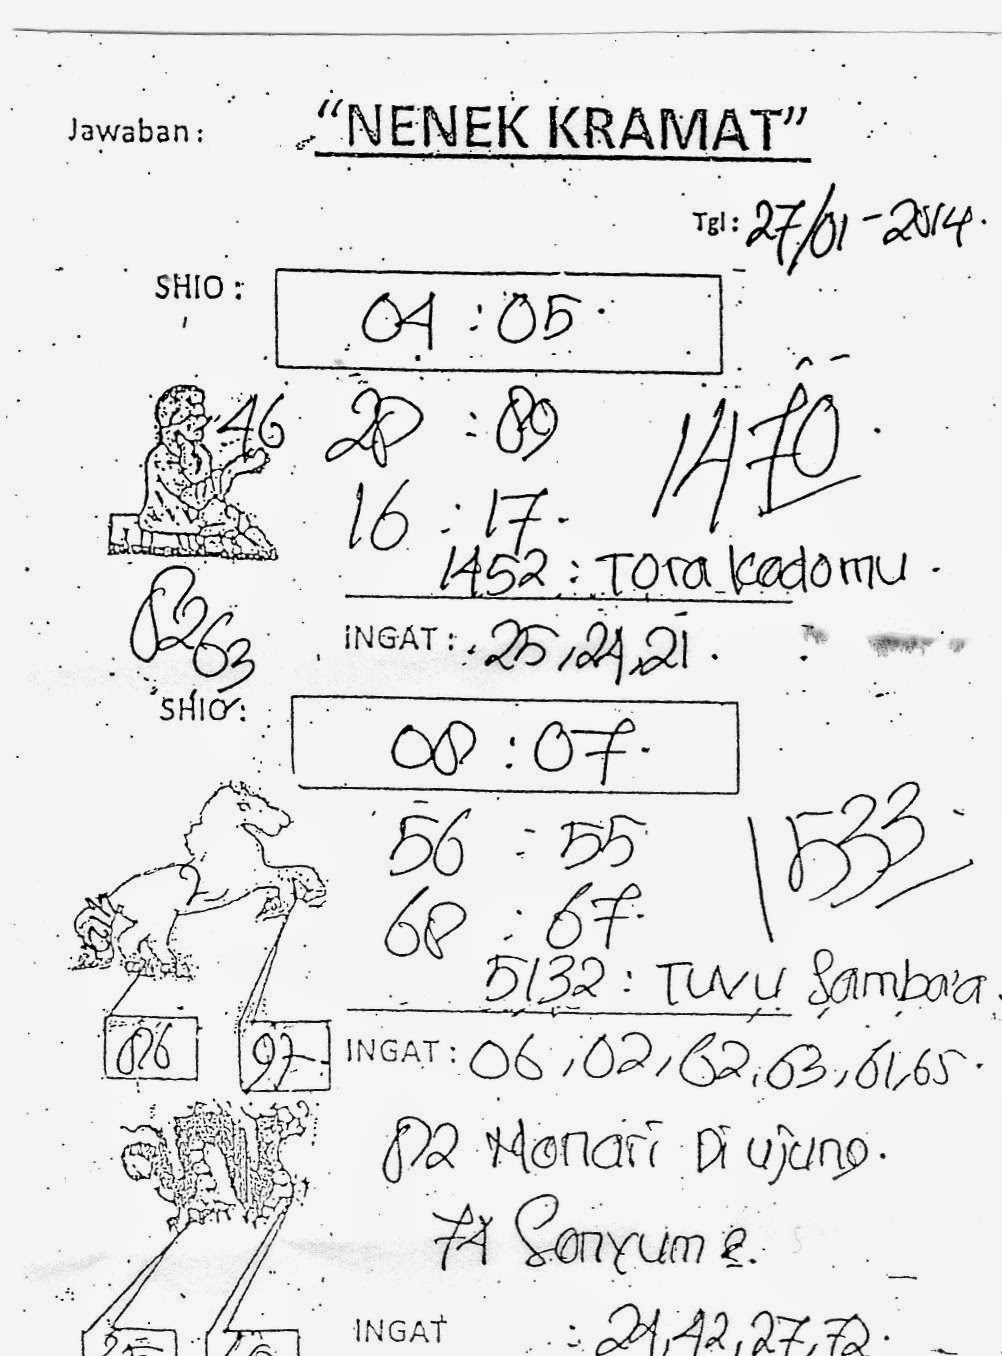 Jawaban :
"NENEK KRAMAT"
Tgl : 27/01-2014.
SHIO :
04 : 05.
46
28 : 89
1470.
16 : 17.
1452 : Tora Kadomu.
8263
INGAT : 25, 24, 21.
SHIO :
08 : 07.
56 : 55
1533
68 : 67.
5132 : TUVU Samba'a.
86
97
INGAT : 06, 02, 62, 63, 61, 65.
82 Monari Di ujung.
74
INGAT : 24, 42, 27, 72.